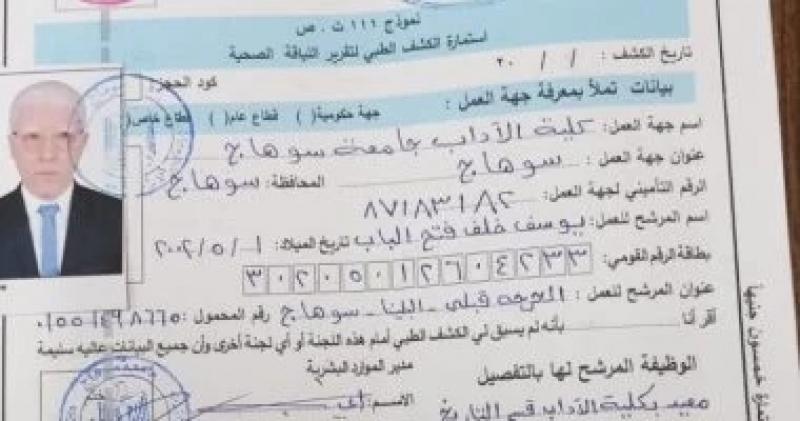 نموذج ١١١ ت . ص
استمارة الكشف الطبي لتقرير اللياقة الصحية
تاريخ الكشف : / / ٢٠
كود الحجز :
بيانات تملأ بمعرفة جهة العمل :
جهة حكومية( ) قطاع عام( ) قطاع خاص(
اسم جهة العمل: كلية الآداب جامعة سوهاج
عنوان جهة العمل: سوهاج المحافظة: سوهاج
الرقم التأميني لجهة العمل: ٨٧١٨٣١٨٢
اسم المرشح للعمل: يوسف خلف فتح الباب تاريخ الميلاد: ١ / ٥ / ٢٠٠٢
بطاقة الرقم القومي: ٣٠٢٠٥٠١٢٦٠٤٢٣٣
عنوان المرشح للعمل: قبلي - البلينا - سوهاج رقم المحمول:
أقر أنا بأنه لم يسبق لي الكشف الطبي أمام هذه اللجنة أو أي لجنة أخرى وأن جميع البيانات عاليه سليمة
الوظيفة المرشح لها بالتفصيل
مدير الموارد البشرية
معيد بكلية الآداب قسم التاريخ
الاسم:
خمسون جنيها